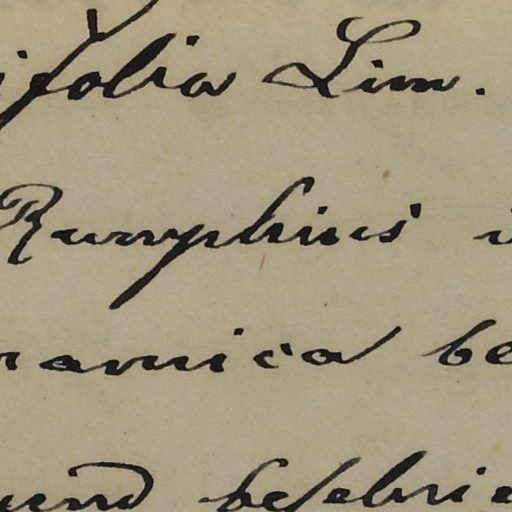 ifolia Linn.
Rumphius i
namica be
und beschrie